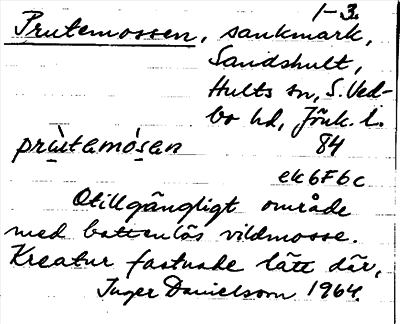 1-3.
Prutemossen, sankmark,
Sandshult,
Hults sn, S. Ved-
bo hd, Jönk. l.
prùtamòsan 84
ek 6F6c
Otillgängligt område
med bottenlös vildmosse.
Kreatur fastnade lätt där.
Inger Danielsson 1964.